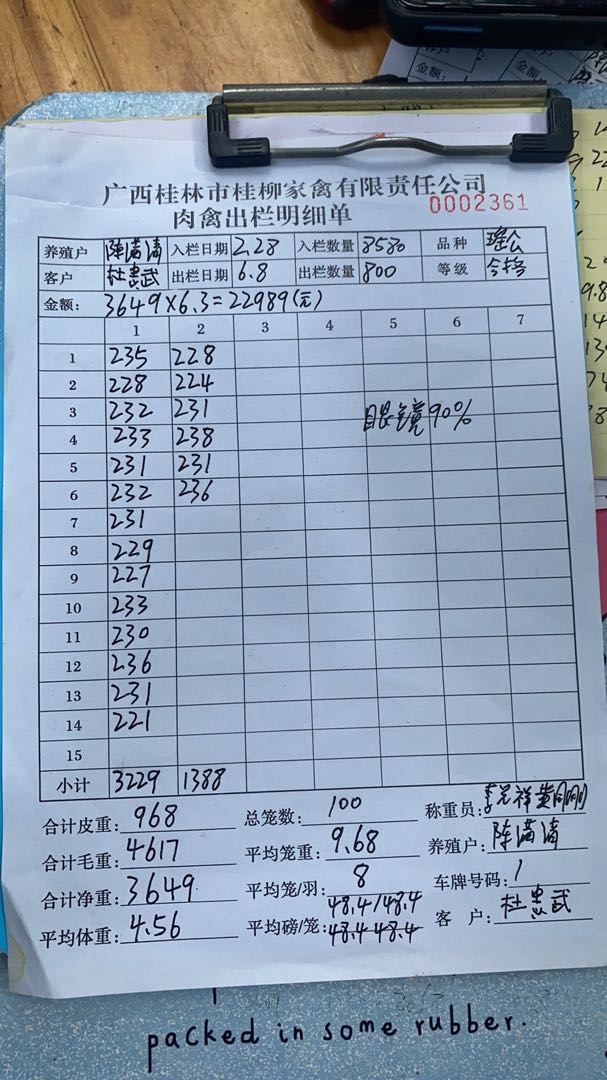 广西桂林市桂柳家禽有限责任公司
肉禽出栏明细单 0002361
养殖户 陈满清 入栏日期 2.28 入栏数量 3530 品种 瑶公
客户 杜忠武 出栏日期 6.8 出栏数量 800 等级 合格
金额: 3649×6.3=22989(元)
1 2 3 4 5 6 7
1 235 228
2 228 224
3 232 231 眼镜90%
4 233 238
5 231 231
6 232 236
7 231
8 229
9 227
10 233
11 230
12 236
13 231
14 221
15
小计 3229 1388
合计皮重: 968 总笼数: 100 称重员:
合计毛重: 4617 平均笼重: 9.68 养殖户: 陈满清
合计净重: 3649 平均笼/羽: 8 车牌号码: 1
平均体重: 4.56 平均磅/笼: 48.4/48.4 客 户: 杜忠武
48.4 48.4
packed in some rubber.